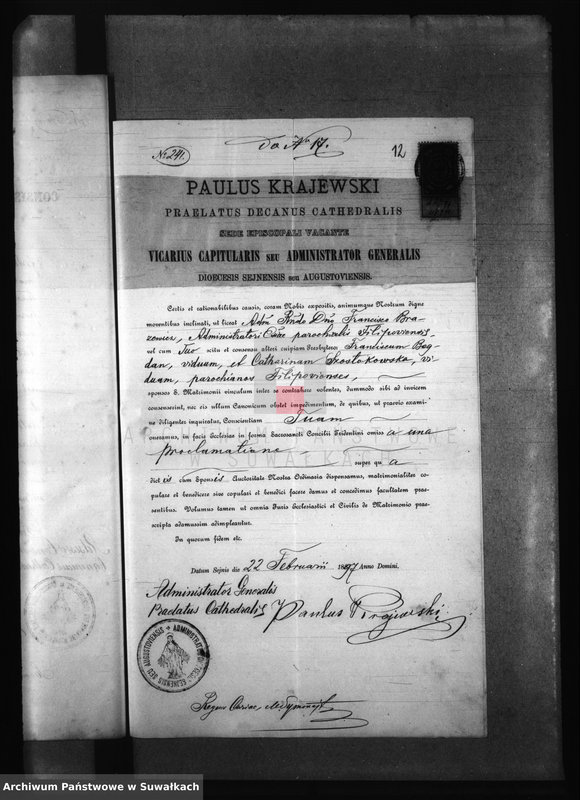 Do No 17.
No. 241.
12
PAULUS KRAJEWSKI
PRAELATUS DECANUS CATHEDRALIS
SEDE EPISCOPALI VACANTE
VICARIUS CAPITULARIS SEU ADMINISTRATOR GENERALIS
DIOECESIS SEJNENSIS SEU AUGUSTOVIENSIS.
Certis et rationabilibus causis, coram Nobis expositis, animumque Nostrum digne
moventibus inclinati, ut liceat Adm Rndo Dno Francisco Bra-
zewicz, Administratori Curae parochialis Filipoviensis
vel cum Tuo scitu et consensu alteri cuipiam Presbytero Franciscum Bog-
dan, viduum, et Catharinam Szostakowska, vi-
duam, parochianos Filipovienses,
sponsos S. Matrimonii vinculum inter se contrahere volentes, dummodo sibi ad invicem
consenserint, nec eis ullum Canonicum obstet impedimentum, de quibus, ut praevio exami-
ne diligenter inquiratur, Conscientiam Tuam
oneramus, in facie Ecclesiae in forma Sacrosancti Concilii Tridentini omissa a una
proclamatione
super qua
dictis cum Sponsis Auctoritate Nostra Ordinaria dispensamus, matrimonialiter co-
pulare et benedicere sive copulari et benedici facere damus et concedimus facultatem prae-
sentibus. Volumus tamen ut omnia Juris Ecclesiastici et Civilis de Matrimonio prae-
scripta adamussim adimpleantur.
In quorum fidem etc.
Datum Sejnis die 22 Februarii 1897 Anno Domini.
Administrator Generalis
Praelatus Cathedralis Paulus Krajewski
ADMINISTRAT
SEJNENSIS SEU AUGUSTOVIENSIS
Regens Curiae
ARCHIWUM PAŃSTWOWE
W SUWAŁKACH
Archiwum Państwowe w Suwałkach